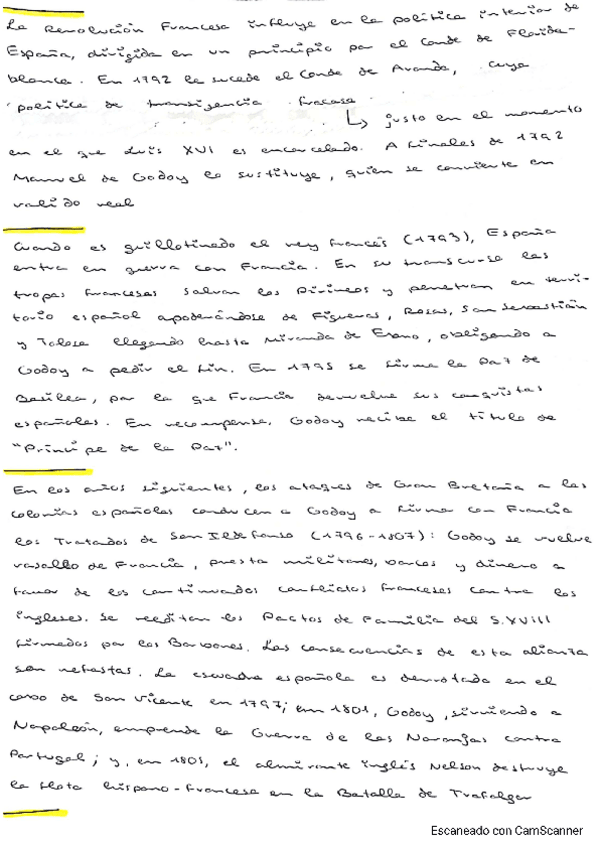 La Revolución Francesa influye en la política interior de
España, dirigida en un principio por el Conde de Florida-
blanca. En 1792 le sucede el Conde de Aranda, cuya
política de transigencia fracasa
↳ justo en el momento
en el que Luis XVI es encarcelado. A finales de 1792
Manuel de Godoy lo sustituye, quien se convierte en
valido real
Cuando es guillotinado el rey francés (1793), España
entra en guerra con Francia. En su transcurso las
tropas francesas salvan los Pirineos y penetran en terri-
torio español apoderándose de Figueras, Rosas, San Sebastián
y Tolosa llegando hasta Miranda de Ebro, obligando a
Godoy a pedir el fin. En 1795 se firma la Paz de
Basilea, por la que Francia devuelve sus conquistas
españolas. En recompensa, Godoy recibe el título de
"Príncipe de la Paz".
En los años siguientes, los ataques de Gran Bretaña a las
colonias españolas conducen a Godoy a firmar con Francia
los Tratados de San Ildefonso (1796-1807): Godoy se vuelve
vasallo de Francia, presta militares, barcos y dinero a
favor de los continuados conflictos franceses contra los
ingleses. Se reeditan los Pactos de Familia del S.XVIII
firmados por los Borbones. Las consecuencias de esta alianza
son nefastas. La escuadra española es derrotada en el
cabo de San Vicente en 1797; en 1801, Godoy, sirviendo a
Napoleón, emprende la Guerra de las Naranjas contra
Portugal; y, en 1805, el almirante inglés Nelson destruye
la flota hispano-francesa en la Batalla de Trafalgar
Escaneado con CamScanner